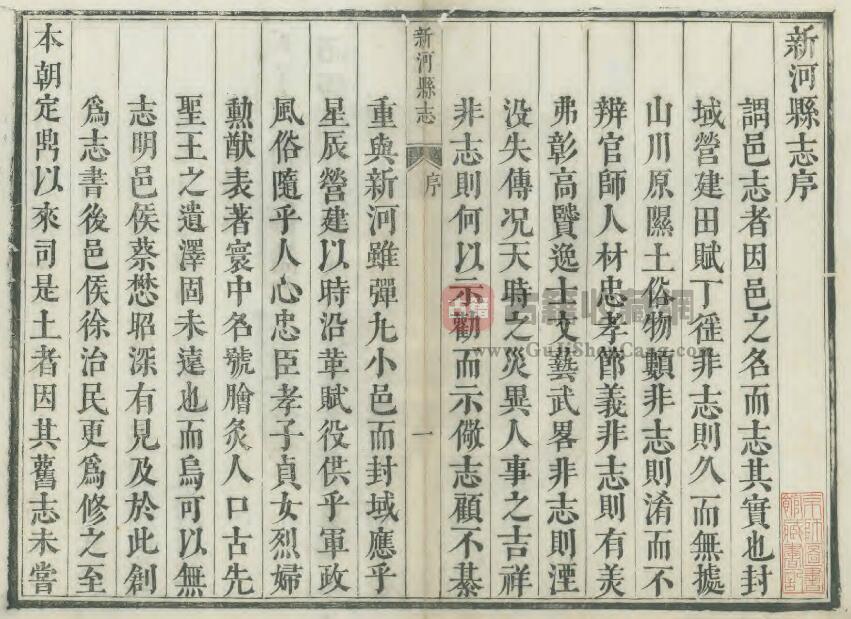 新河縣志序
謂邑志者因邑之名而志其實也封
域營建田賦丁徭非志則久而無據
山川原隰土俗物類非志則淆而不
辨官師人材忠孝節義非志則有美
弗彰高賢逸士文藝武畧非志則湮
没失傳况天時之災異人事之吉祥
非志則何以示勸而示儆志顧不綦
新河縣志
序
一
重與新河雖彈丸小邑而封域應乎
星辰營建以時沿革賦役供乎軍政
風俗隨乎人心忠臣孝子貞女烈婦
勳猷表著寰中名號膾炙人口古先
聖王之遺澤固未遠也而烏可以無
志明邑侯蔡懋昭深有見及於此創
爲志書後邑侯徐治民更爲修之至
本朝定鼎以來司是土者因其舊志未嘗
古籍
古籍收藏網
www.GuJiShouCang.com